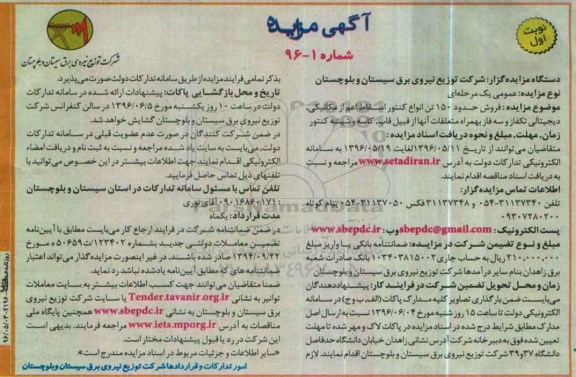 آگهی مزایده
شماره ۱-۹۶
نوبت اول
شرکت توزیع نیروی برق سیستان و بلوچستان
دستگاه مزایده گزار: شرکت توزیع نیروی برق سیستان و بلوچستان
نوع مزایده: عمومی یک مرحله‌ای
موضوع مزایده: فروش حدود ۱۵۰ تن انواع کنتور اسقاط اعم از مکانیکی،
دیجیتالی تکفاز و سه فاز بهمراه متعلقات آنها از قبیل قاب، کاسه و شیشه کنتور
زمان، مهلت، مبلغ و نحوه دریافت اسناد مزایده:
متقاضیان می‌توانند از تاریخ ۱۳۹۶/۰۵/۱۱ لغایت ۱۳۹۶/۰۵/۱۹ به سامانه
الکترونیکی تدارکات دولت به آدرس www.setadiran.ir مراجعه و نسبت
به دریافت اسناد مناقصه اقدام نمایند.
اطلاعات تماس مزایده گزار:
تلفن ۳۱۱۳۷۳۴۰-۰۵۴ و ۳۱۱۳۷۳۴۸ فکس ۳۱۱۳۷۰۵۰-۰۵۴ پیام کوتاه
۰۹۳۰۷۲۸۰۲۰۰
پست الکترونیک: sbepdc@gmail.com وب: www.sbepdc.ir
مبلغ و نوع تضمین شرکت در مزایده: ضمانتنامه بانکی یا واریز مبلغ
۲۱۰،۰۰۰،۰۰۰ ریال به حساب جاری ۱۰۳۴۰۳۸۱۵۰۰۲ بانک صادرات شعبه
برق زاهدان بنام سایر درآمدها شرکت توزیع نیروی برق سیستان و بلوچستان
زمان و محل تحویل تضمین شرکت در فرایند کار: پیشنهاددهندگان
می‌بایست ضمن بارگذاری تصاویر کلیه مدارک پاکات (الف، ب و ج) در سامانه
الکترونیکی دولت تا ساعت ۱۵ روز شنبه مورخ ۱۳۹۶/۰۶/۰۴ نسبت به ارسال اصل
مدارک مطابق شرایط درج شده در اسناد مزایده در پاکات لاک و مهر شده تا مهلت
تعیین شده فوق به دبیرخانه شرکت آدرس نشانی زاهدان خیابان دانشگاه حدفاصل
دانشگاه ۳۷ و ۳۹ شرکت توزیع نیروی برق سیستان و بلوچستان اقدام نمایند. لازم
بذکر تمامی فرایند مزایده از طریق سامانه تدارکات دولت صورت می‌پذیرد.
تاریخ و محل بازگشایی پاکات: پیشنهادات ارائه شده در سامانه تدارکات
دولت در ساعت ۱۰ روز یکشنبه مورخ ۱۳۹۶/۰۶/۵ در سالن کنفرانس شرکت
توزیع نیروی برق سیستان و بلوچستان گشایش خواهد شد.
در ضمن شرکت کنندگان در صورت عدم عضویت قبلی در سامانه تدارکات
دولت، می‌بایست به سایت یاد شده مراجعه و نسبت به ثبت نام و دریافت امضاء
الکترونیکی اقدام نمایند جهت اطلاعات بیشتر در این خصوص می‌توانید با
تلفنهای ذیل تماس حاصل فرمایید.
تلفن تماس با مسئول سامانه تدارکات در استان سیستان و بلوچستان
۰۹۰۱۶۸۶۰۱۷۱ آقای نوری
مدت قرارداد: یکماه
در ضمن ضمانتنامه شرکت در فرایند ارجاع کار می‌بایست مطابق با آیین‌نامه
تضمین معاملات دولتی جدید بشماره ۱۲۳۴۰۲/ت۵۰۶۵۹ه مورخ
۱۳۹۴/۰۹/۲۲ صادر شده باشند. در غیر اینصورت مزایده گذار می‌تواند اعتبار
ضمانتنامه های که مطابق آیین‌نامه یادشده نباشد رد نماید.
ضمنا متقاضیان می‌توانند جهت کسب اطلاعات بیشتر به سایت معاملات
توانیر به نشانی Tender.tavanir.org.ir یا سایت شرکت توزیع نیروی
برق سیستان و بلوچستان به نشانی www.sbepdc.ir همچنین پایگاه ملی
مناقصات به آدرس www.iets.mporg.ir مراجعه فرمایند. بدیهی است
این شرکت در رد یا قبول پیشنهادات مختار است.
«سایر اطلاعات و جزئیات مربوط در اسناد مزایده مندرج است».
امور تدارکات و قراردادها شرکت توزیع نیروی برق سیستان و بلوچستان